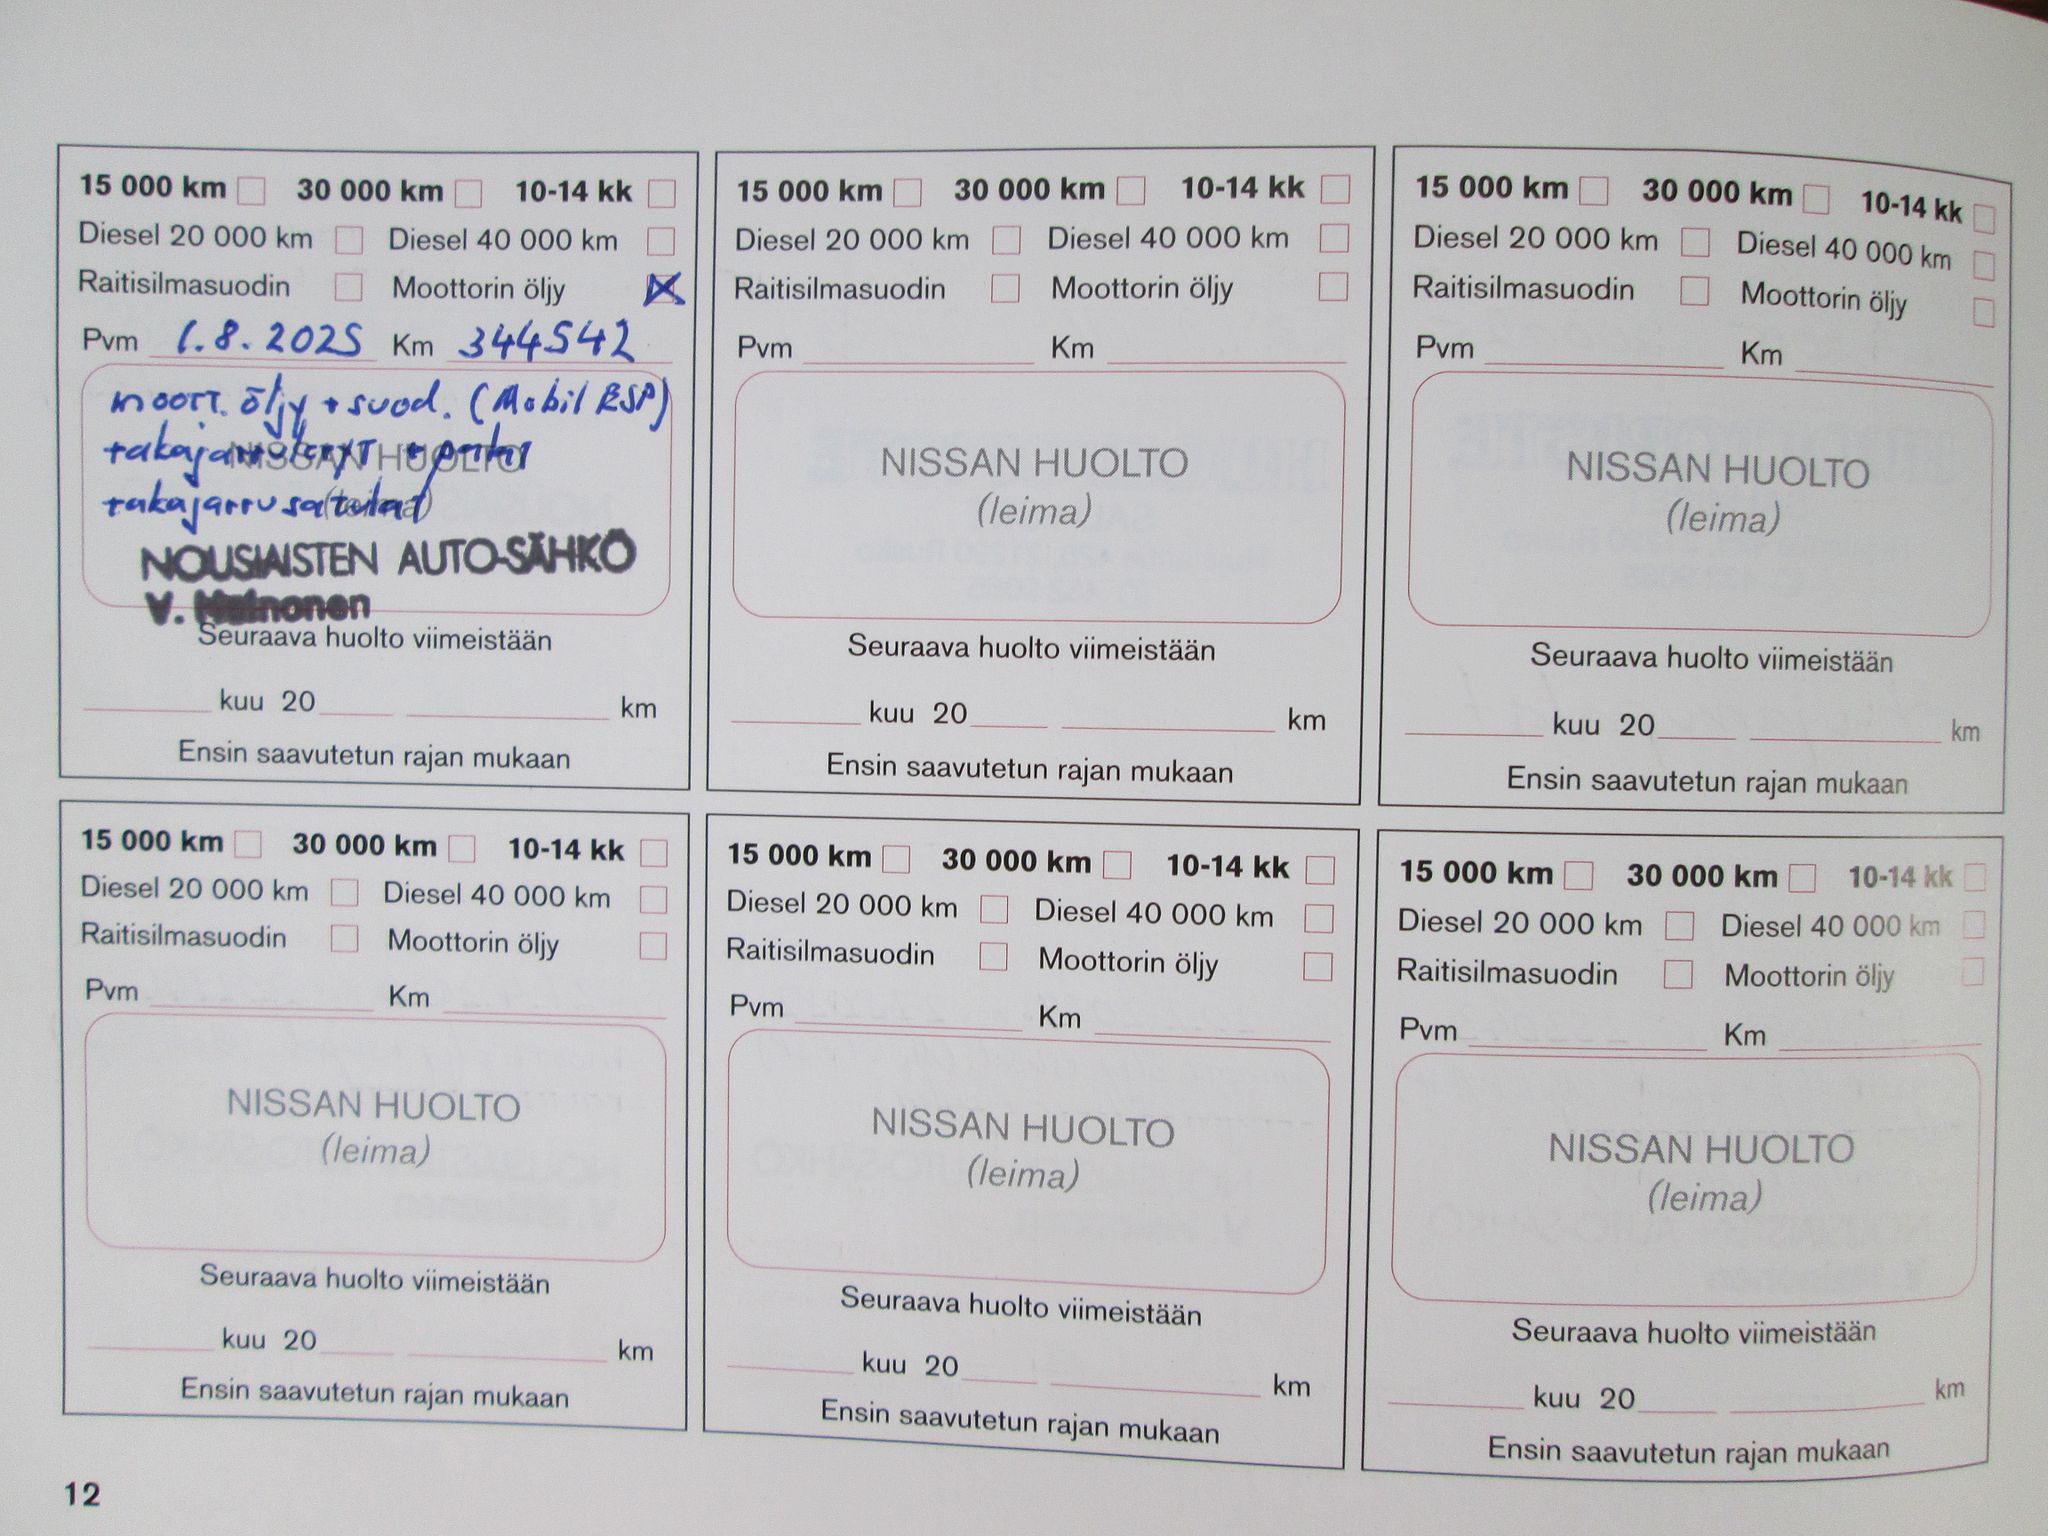 15 000 km 30 000 km 10-14 kk
Diesel 20 000 km Diesel 40 000 km
Raitisilmasuodin Moottorin öljy
Pvm 1.8.2025 Km 344542
moott. öljy + suod. (Mobil ESP)
NISSAN HUOLTO
takajarrulevyt + palat
(leima)
takajarrusatulat
NOUSIAISTEN AUTO-SÄHKÖ
V. Heinonen
Seuraava huolto viimeistään
kuu 20 km
Ensin saavutetun rajan mukaan
15 000 km 30 000 km 10-14 kk
Diesel 20 000 km Diesel 40 000 km
Raitisilmasuodin Moottorin öljy
Pvm Km
NISSAN HUOLTO
(leima)
Seuraava huolto viimeistään
kuu 20 km
Ensin saavutetun rajan mukaan
15 000 km 30 000 km 10-14 kk
Diesel 20 000 km Diesel 40 000 km
Raitisilmasuodin Moottorin öljy
Pvm Km
NISSAN HUOLTO
(leima)
Seuraava huolto viimeistään
kuu 20 km
Ensin saavutetun rajan mukaan
15 000 km 30 000 km 10-14 kk
Diesel 20 000 km Diesel 40 000 km
Raitisilmasuodin Moottorin öljy
Pvm Km
NISSAN HUOLTO
(leima)
Seuraava huolto viimeistään
kuu 20 km
Ensin saavutetun rajan mukaan
15 000 km 30 000 km 10-14 kk
Diesel 20 000 km Diesel 40 000 km
Raitisilmasuodin Moottorin öljy
Pvm Km
NISSAN HUOLTO
(leima)
Seuraava huolto viimeistään
kuu 20 km
Ensin saavutetun rajan mukaan
15 000 km 30 000 km 10-14 kk
Diesel 20 000 km Diesel 40 000 km
Raitisilmasuodin Moottorin öljy
Pvm Km
NISSAN HUOLTO
(leima)
Seuraava huolto viimeistään
kuu 20 km
Ensin saavutetun rajan mukaan
12